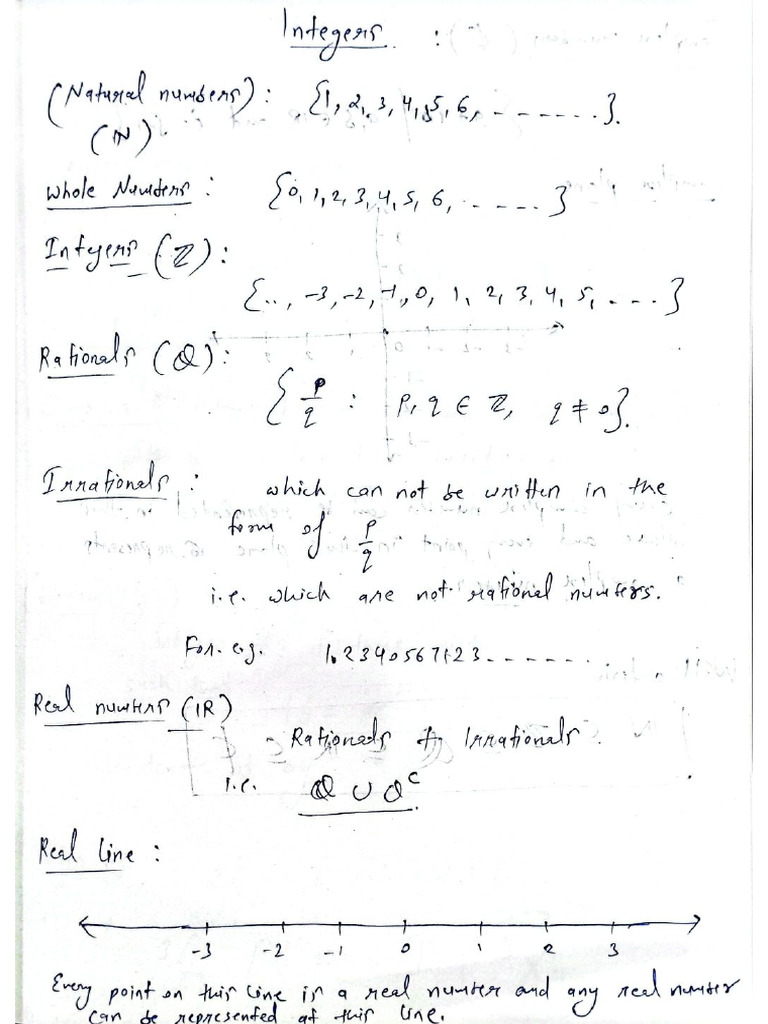 Integers :
(Natural numbers) : {1, 2, 3, 4, 5, 6, - - - - - - .}.
(ℕ).
Whole Numbers : {0, 1, 2, 3, 4, 5, 6, - - - - }
Integers (ℤ) :
{.., -3, -2, -1, 0, 1, 2, 3, 4, 5, - - - - }
Rationals (ℚ) :
{p/q : p, q ∈ ℤ, q ≠ 0}.
Irrationals : which can not be written in the
form of p/q
i.e. which are not rational numbers.
For. e.g. 1.2340567123 - - - - - - -
Real numbers (ℝ)
Rationals + Irrationals.
i.e. ℚ ∪ ℚᶜ.
Real Line :
-3 -2 -1 0 1 2 3
Every point on this line is a real number and any real number
can be represented at this line.